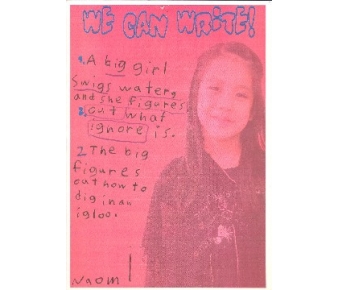 WE CAN WRITE!
1. A big girl
swigs water,
and she figures
2. out what
ignore is.
2 The big
figures
out how to
dig in an
igloo.
Naomi